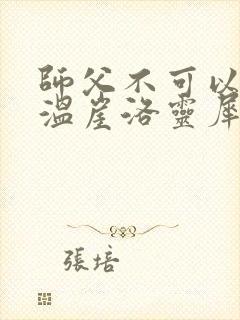 師父不可以
溫崖洛靈犀
張培